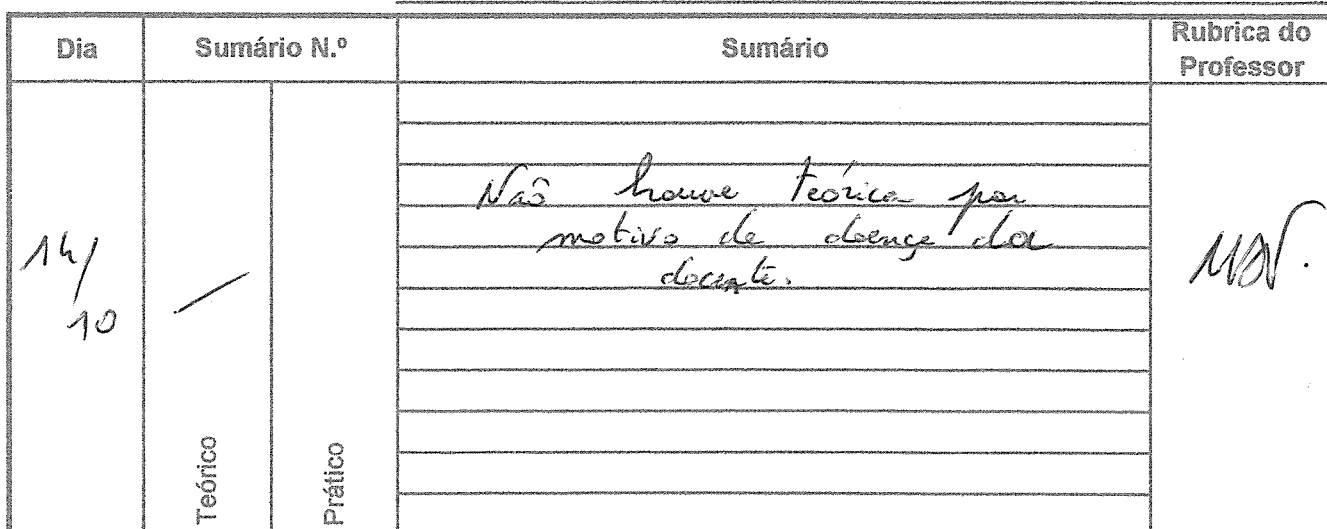 Dia
Sumário N.º
Sumário
Rubrica do
Professor
14/
10
/
Não houve teórica por
motivo de doença da
docente.
Teórico
Prático